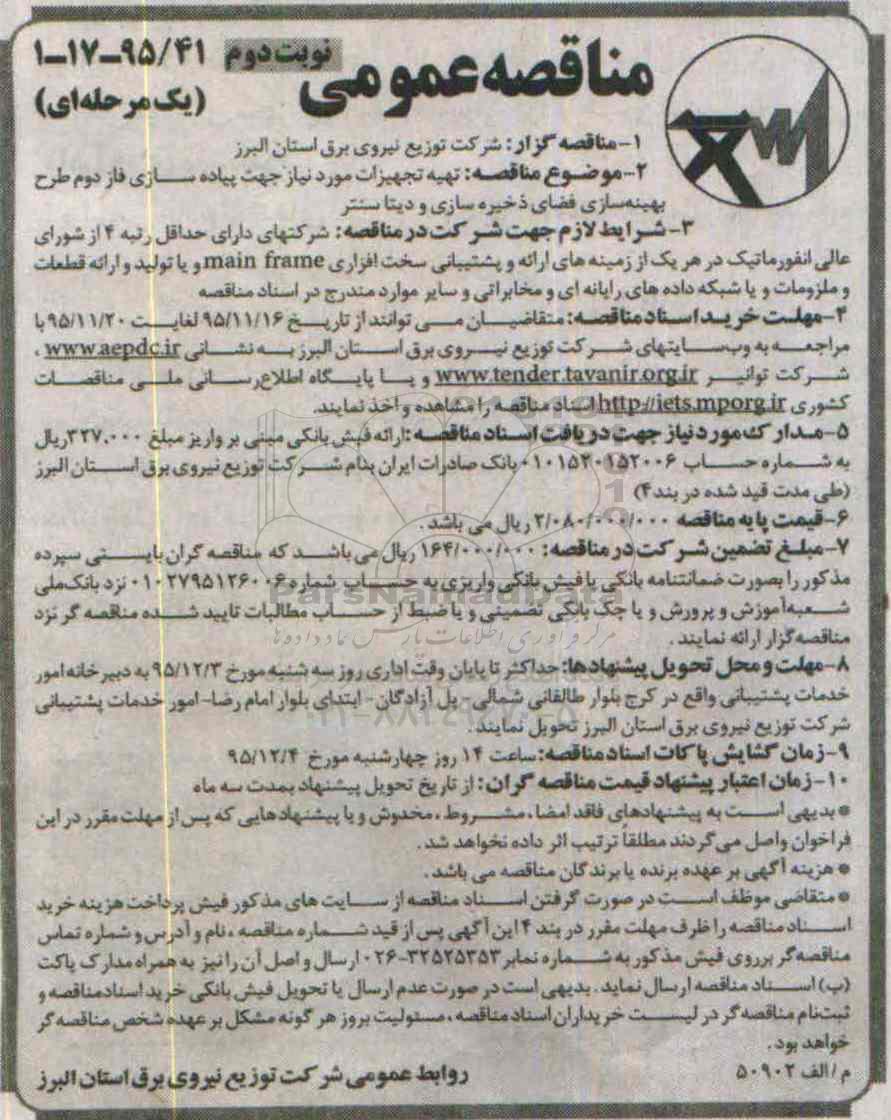 مناقصه عمومی
نوبت دوم ۹۵/۴۱-۱۷-۱
(یک مرحله‌ای)
۱-مناقصه گزار: شرکت توزیع نیروی برق استان البرز
۲-موضوع مناقصه: تهیه تجهیزات مورد نیاز جهت پیاده سازی فاز دوم طرح
بهینه‌سازی فضای ذخیره سازی و دیتا سنتر
۳-شرایط لازم جهت شرکت در مناقصه: شرکتهای دارای حداقل رتبه ۴ از شورای
عالی انفورماتیک در هر یک از زمینه های ارائه و پشتیبانی سخت افزاری main frame و یا تولید و ارائه قطعات
و ملزومات و یا شبکه داده های رایانه ای و مخابراتی و سایر موارد مندرج در اسناد مناقصه
۴-مهلت خرید اسناد مناقصه: متقاضیان می توانند از تاریخ ۹۵/۱۱/۱۶ لغایت ۹۵/۱۱/۲۰ با
مراجعه به وب‌سایتهای شرکت توزیع نیروی برق استان البرز به نشانی www.aepdc.ir ،
شرکت توانیر www.tender.tavanir.org.ir و یا پایگاه اطلاع‌رسانی ملی مناقصات
کشوری http://iets.mporg.ir اسناد مناقصه را مشاهده و اخذ نمایند.
۵-مدارک مورد نیاز جهت دریافت اسناد مناقصه: ارائه فیش بانکی مبنی بر واریز مبلغ ۳۲۷,۰۰۰ ریال
به شماره حساب ۰۱۰۱۵۲۰۱۵۲۰۰۶ بانک صادرات ایران بنام شرکت توزیع نیروی برق استان البرز
(طی مدت قید شده در بند ۴)
۶-قیمت پایه مناقصه ۲/۰۸۰/۰۰۰/۰۰۰ ریال می باشد.
۷-مبلغ تضمین شرکت در مناقصه: ۱۶۴/۰۰۰/۰۰۰ ریال می باشد که مناقصه گران بایستی سپرده
مذکور را بصورت ضمانتنامه بانکی یا فیش بانکی واریزی به حساب شماره ۰۱۰۲۷۹۵۱۲۶۰۰۶ نزد بانک ملی
شعبه آموزش و پرورش و یا چک بانکی تضمینی و یا ضبط از حساب مطالبات تایید شده مناقصه گر نزد
مناقصه‌گزار ارائه نمایند.
ParsNamadData
مرکز فرآوری اطلاعات پارس نماد داده‌ها
۸-مهلت و محل تحویل پیشنهادها: حداکثر تا پایان وقت اداری روز سه شنبه مورخ ۹۵/۱۲/۳ به دبیرخانه امور
خدمات پشتیبانی واقع در کرج بلوار طالقانی شمالی - پل آزادگان - ابتدای بلوار امام رضا- امور خدمات پشتیبانی
شرکت توزیع نیروی برق استان البرز تحویل نمایند.
۹-زمان گشایش پاکات اسناد مناقصه: ساعت ۱۴ روز چهارشنبه مورخ ۹۵/۱۲/۴
۱۰-زمان اعتبار پیشنهاد قیمت مناقصه گران: از تاریخ تحویل پیشنهاد بمدت سه ماه
* بدیهی است به پیشنهادهای فاقد امضا، مشروط، مخدوش و یا پیشنهادهایی که پس از مهلت مقرر در این
فراخوان واصل می‌گردند مطلقاً ترتیب اثر داده نخواهد شد.
* هزینه آگهی بر عهده برنده یا برندگان مناقصه می باشد.
* متقاضی موظف است در صورت گرفتن اسناد مناقصه از سایت های مذکور فیش پرداخت هزینه خرید
اسناد مناقصه را ظرف مهلت مقرر در بند ۴ این آگهی پس از قید شماره مناقصه، نام و آدرس و شماره تماس
مناقصه‌گر برروی فیش مذکور به شماره نمابر ۳۲۵۲۵۳۵۳-۰۲۶ ارسال و اصل آن را نیز به همراه مدارک پاکت
(ب) اسناد مناقصه ارسال نماید. بدیهی است در صورت عدم ارسال یا تحویل فیش بانکی خرید اسناد مناقصه و
ثبت‌نام مناقصه گر در لیست خریداران اسناد مناقصه، مسئولیت بروز هر گونه مشکل بر عهده شخص مناقصه گر
خواهد بود.
م/الف ۵۰۹۰۲
روابط عمومی شرکت توزیع نیروی برق استان البرز